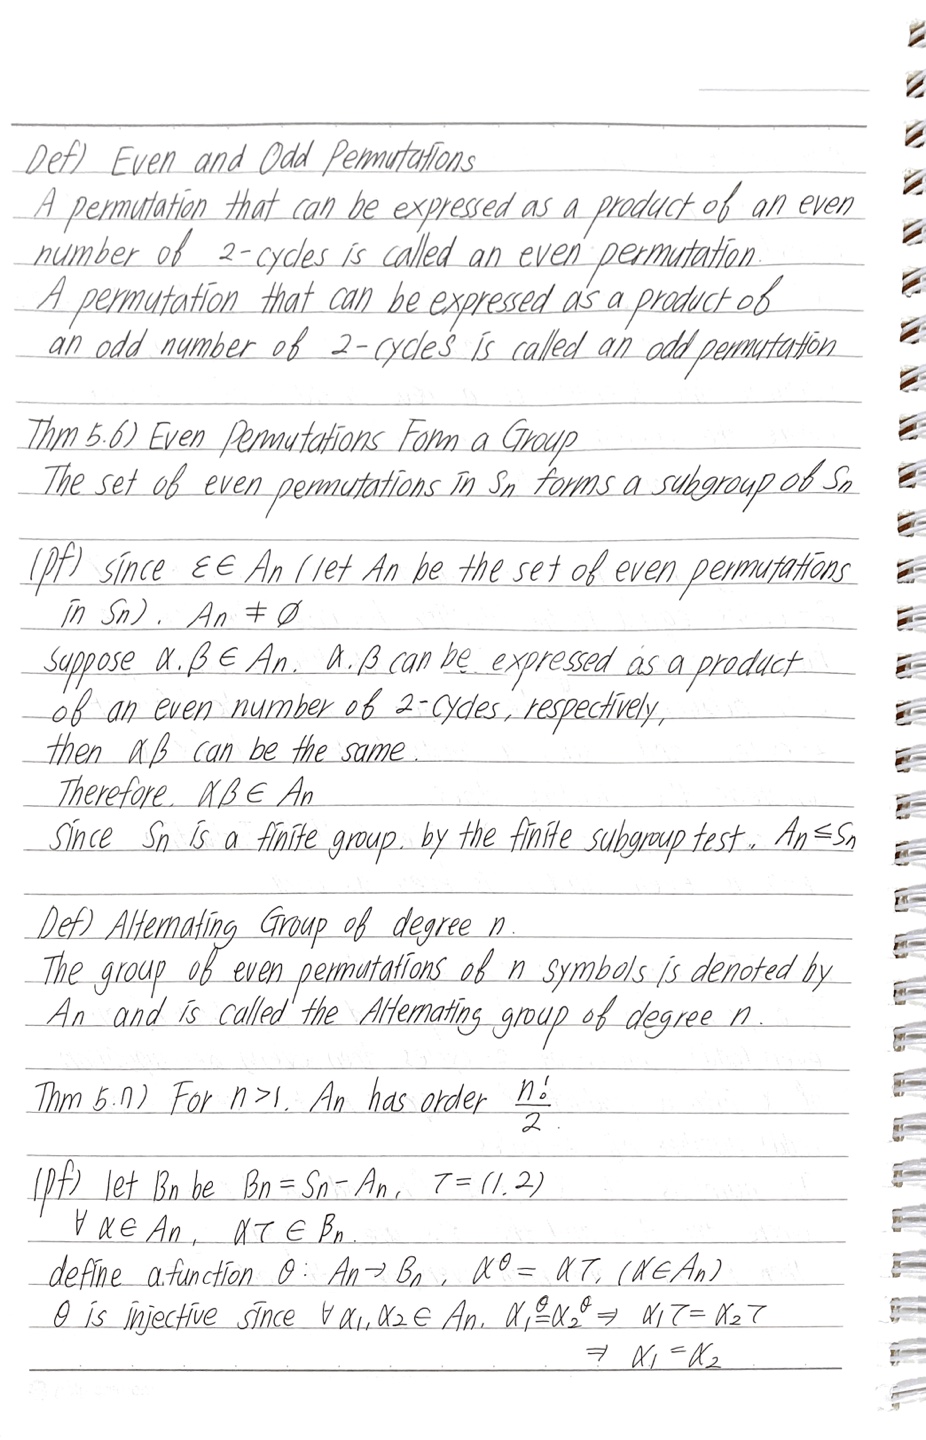 Def) Even and Odd Permutations
A permutation that can be expressed as a product of an even
number of 2-cycles is called an even permutation.
A permutation that can be expressed as a product of
an odd number of 2-cycles is called an odd permutation
Thm 5.6) Even Permutations Form a Group
The set of even permutations in Sn forms a subgroup of Sn
(pf) since ε ∈ An (let An be the set of even permutations
in Sn). An ≠ ∅
suppose α, β ∈ An. α, β can be expressed as a product
of an even number of 2-cycles, respectively,
then αβ can be the same.
Therefore, αβ ∈ An
Since Sn is a finite group, by the finite subgroup test, An ≤ Sn
Def) Alternating Group of degree n.
The group of even permutations of n symbols is denoted by
An and is called the Alternating group of degree n.
Thm 5.7) For n>1, An has order n!/2.
(pf) let Bn be Bn = Sn - An, τ = (1, 2)
∀ α ∈ An, ατ ∈ Bn.
define a function θ: An → Bn, α^θ = ατ, (α ∈ An)
θ is injective since ∀ α₁, α₂ ∈ An, α₁^θ = α₂^θ ⇒ α₁τ = α₂τ
⇒ α₁ = α₂